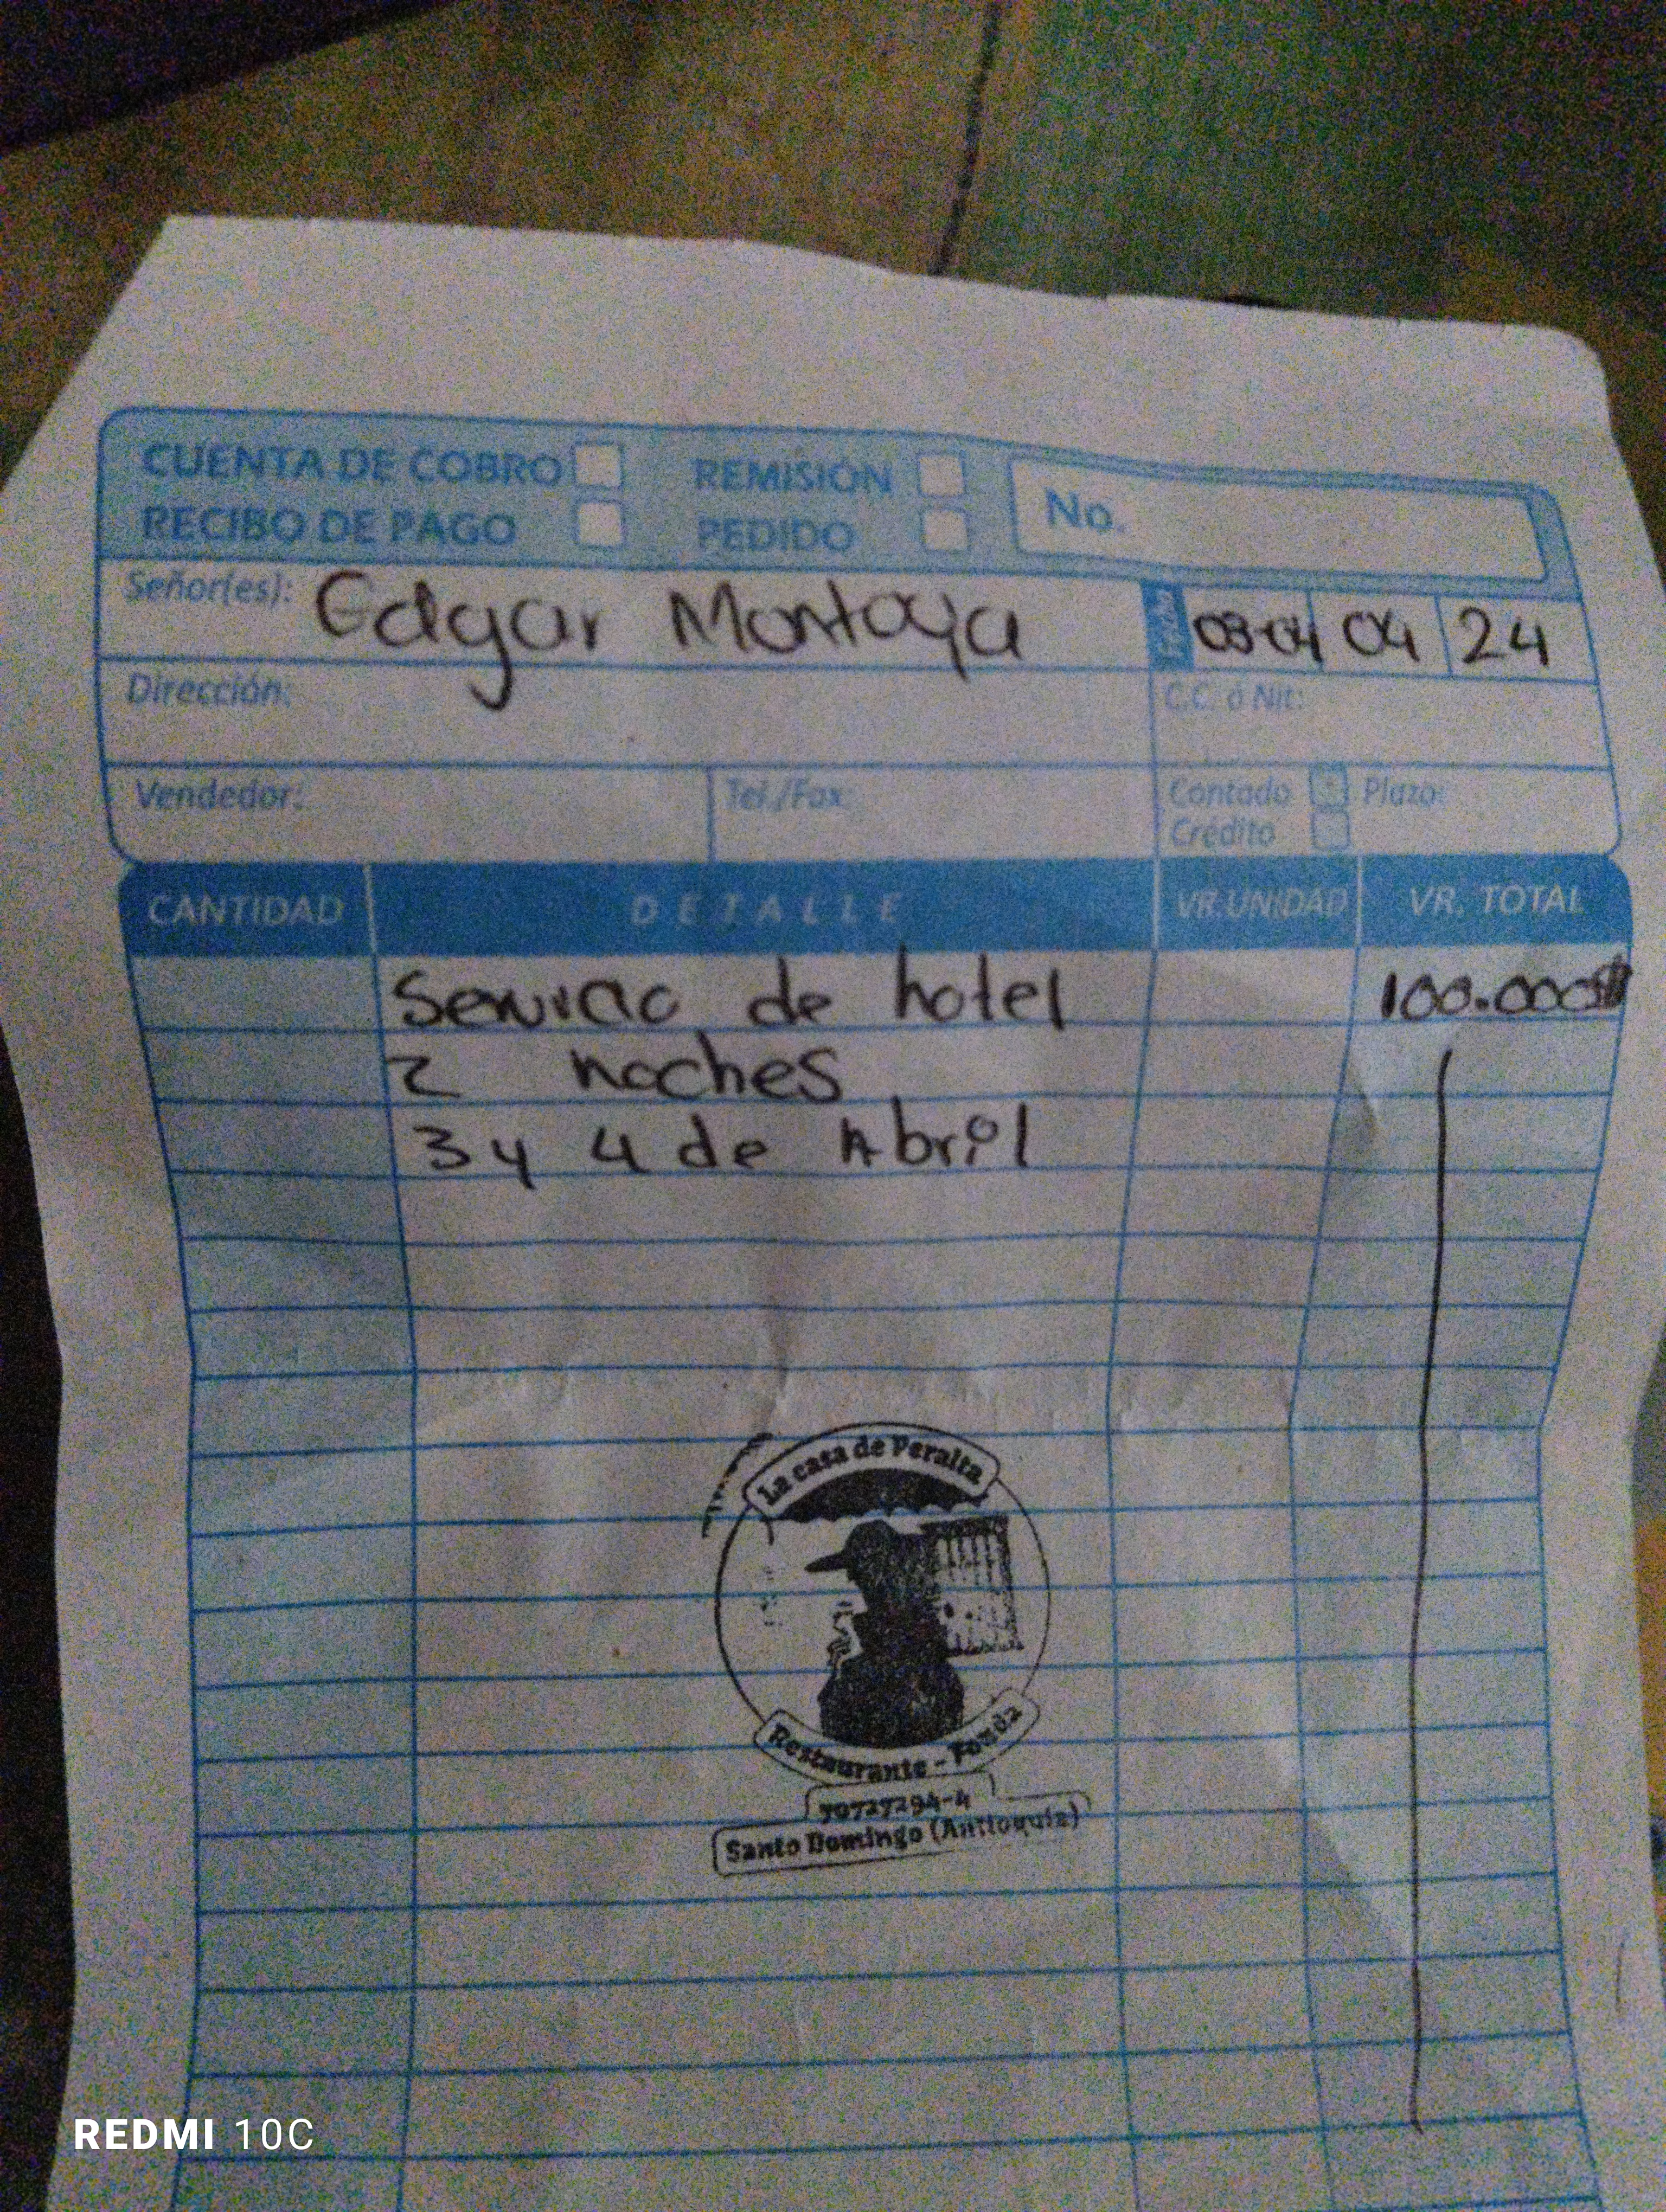 CUENTA DE COBRO REMISIÓN No.
RECIBO DE PAGO PEDIDO
Señor(es): Edgar Montoya Fecha 03-04 04 24
Dirección: C.C. ó Nit:
Vendedor: Tel./Fax: Contado Plazo:
Crédito
CANTIDAD DETALLE VR. UNIDAD VR. TOTAL
Servicio de hotel 100.000$
2 noches
3 y 4 de Abril
La casa de Peralta
Restaurante - Fonda
70727294-4
Santo Domingo (Antioquia)
REDMI 10C